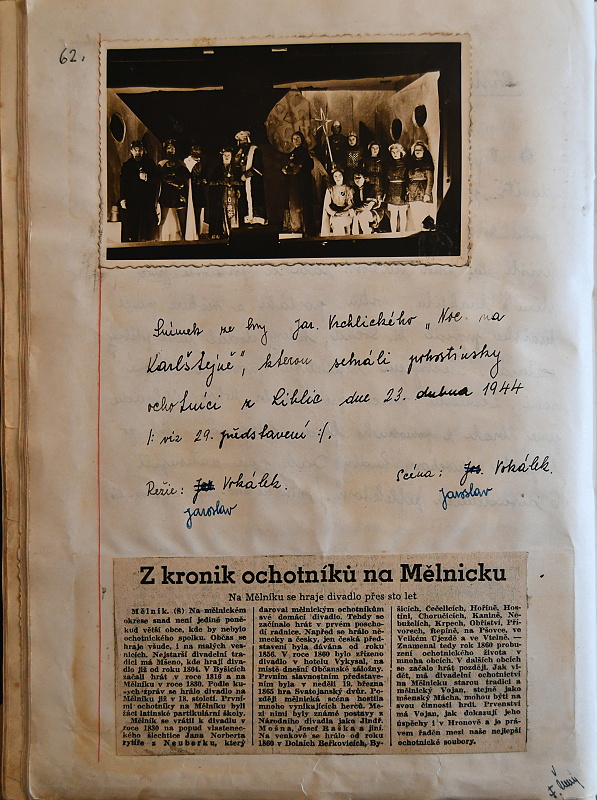 62.
Snímek ze hry Jar. Vrchlického „Noc na
Karlštejně", kterou sehráli pohostinsky
ochotníci z Liblic dne 23. dubna 1944
/: viz 29. představení :/.
Režie: Jar. Vokálek.
Jaroslav
Scéna: Jar. Vokálek.
Jaroslav
Z kronik ochotníků na Mělnicku
Na Mělníku se hraje divadlo přes sto let
Mělník. (8) Na mělnickém
okrese snad není jediné poněkud
větší obce, kde by nebylo
ochotnického spolku. Občas se
hraje všude, i na malých vesnicích.
Nejstarší divadelní tradici
má Mšeno, kde hrají divadlo
již od roku 1804. V Byšicích
začali hrát v roce 1816 a na
Mělníku v roce 1830. Podle
zpráv se hrálo divadlo na
Mělníku již v 18. století. Prvními
ochotníky na Mělníku byli
žáci latinské partikulární školy.
Mělník se vrátil k divadlu v
roce 1830 na popud vlasteneckého
šlechtice Jana Norberta
rytíře z Neuberku, který
daroval mělnickým ochotníkům
své domácí divadlo. Tehdy se
začínalo hrát v prvém poschodí
radnice. Napřed se hrálo německy
a česky, jen česká představení
byla dávána od roku
1856. V roce 1860 bylo zřízeno
divadlo v hotelu Vykysal, na
místě dnešní Občanské záložny.
Prvním slavnostním představením
byla v neděli 19. března
1865 hra Svatojanský dvůr. Později
mělnická scéna hostila
mnoho vynikajících herců. Mezi
nimi byly známé postavy z
Národního divadla jako Jindř.
Mošna, Josef Raška a jiní.
Na venkově se hrálo od roku
1860 v Dolních Beřkovicích, Byšicích,
Čečelicích, Hoříně, Hostíni,
Chorušicích, Kanině, Nebuželích,
Krpech, Obříství, Přívorech,
Řepíně, na Pšovce, ve
Velkém Újezdě a ve Vtelně. —
Znamenal tedy rok 1860 probuzení
ochotnického života v
mnoha obcích. V dalších obcích
se začalo hrát později. Jak vidět,
má divadelní ochotnictví
na Mělnicku starou tradici a
mělnický Vojan, stejně jako
mšenský Mácha, mohou býti na
svou činnosti hrdi. Prvenství
má Vojan, jak dokazují jeho
úspěchy i v Hronově a je právem
řaděn mezi naše nejlepší
ochotnické soubory.